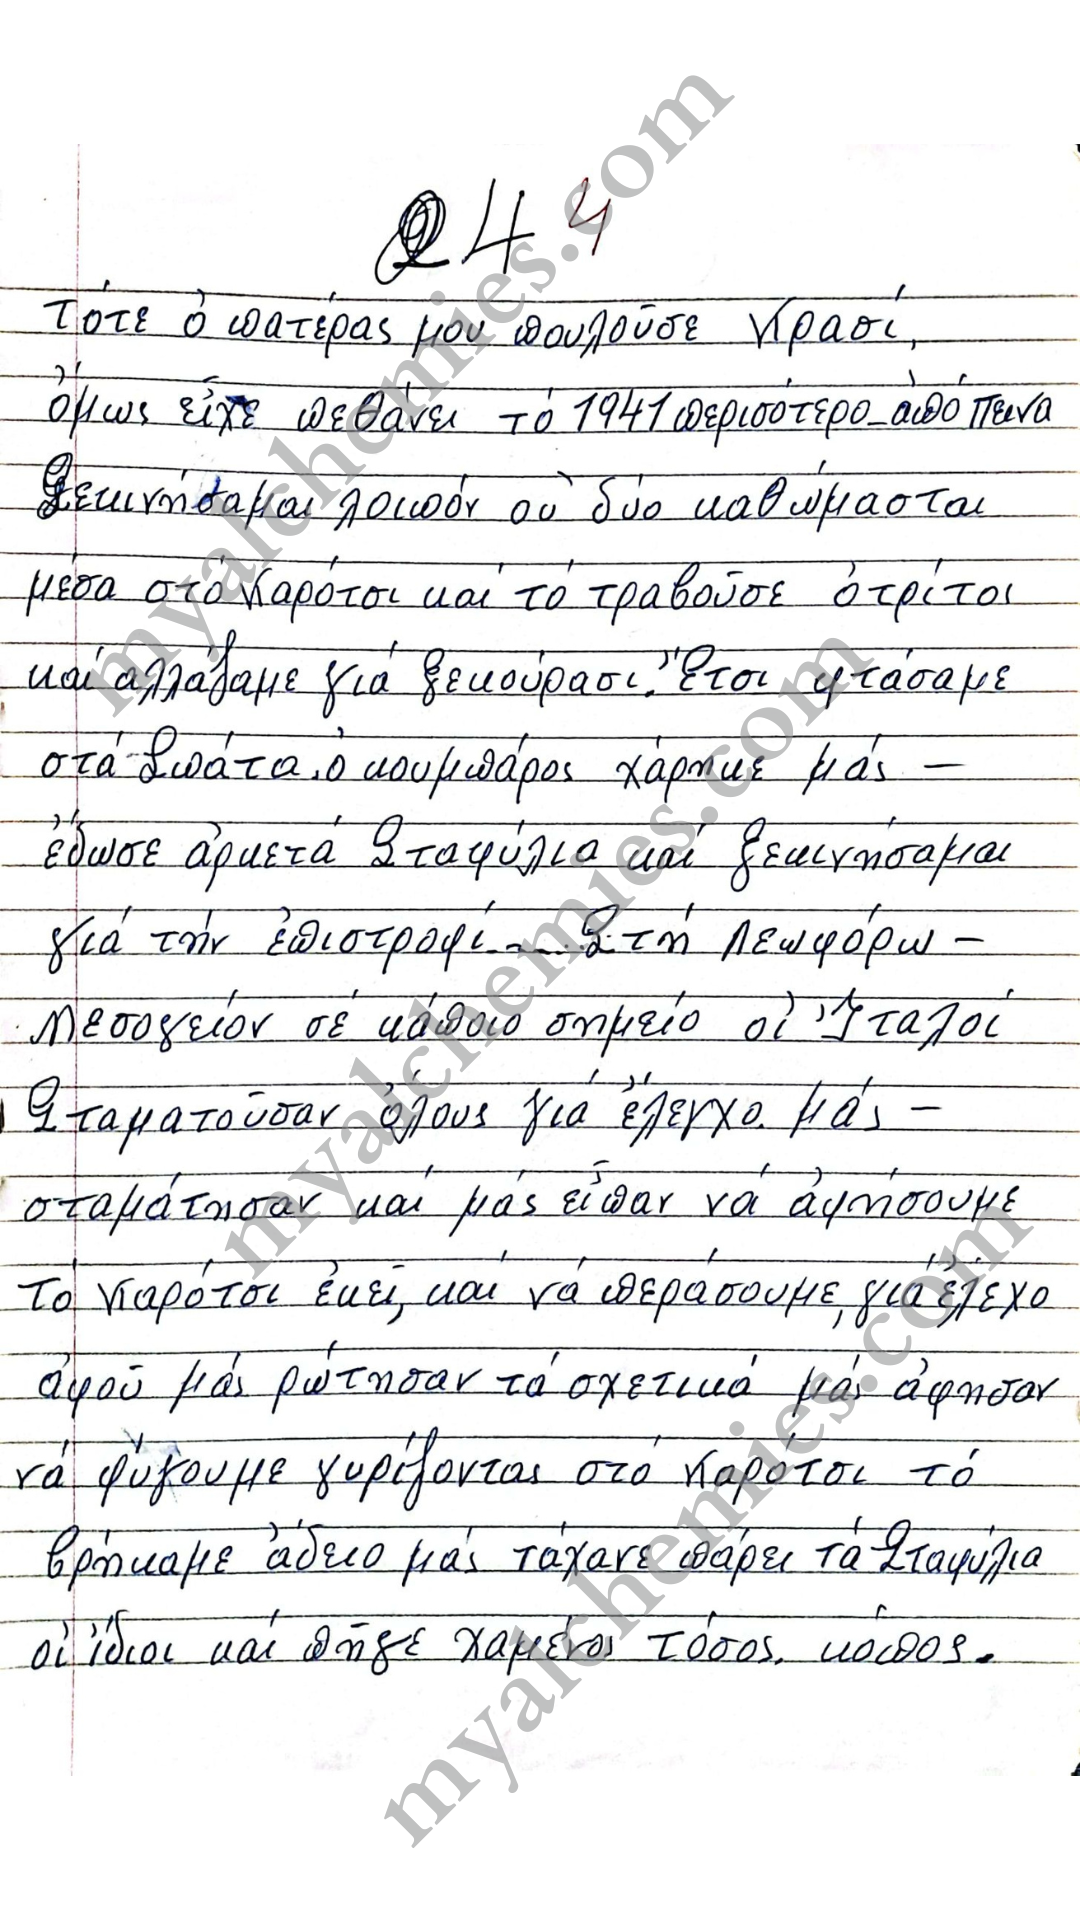 24 4
Τότε ὁ πατέρας μου πουλοῦσε κρασί,
ὅμως εἶχε πεθάνει τό 1941 περισότερο - ἀπό πεινα
Ξεκινήσαμαι λοιπόν οὑ δύο καθώμασται
μέσα στό καρότσι καί τό τραβοῦσε ὁ τρίτος
καί αλλάζαμε γιά ξεκούρασι. Ἔτσι φτάσαμε
στά Σπάτα, ὁ κουμπάρος χάρηκε μάς -
ἔδωσε ἀρκετά Σταφύλια καί ξεκινήσαμαι
γιά τήν ἐπιστροφί.... Στή Λεωφόρω -
Μεσογείον σέ κάποιο σημείο οἱ Ἰταλοί
Σταματοῦσαν ὅλους γιά ἔλεγχο. μάς -
σταμάτησαν καί μάς εἶπαν νά ἀφήσουμε
τό καρότσι ἐκεῖ, καί νά περάσουμε, γιά ἔλεχο
ἀφοῦ μάς ρώτησαν τά σχετικά μάς ἀφησαν
νά φύγουμε γυρίζοντας στό καρότσι τό
βρήκαμε ἀδειο μάς τάχανε πάρει τά Σταφύλια
οἱ ἴδιοι καί πῆγε χαμένος τόσος. κόπος.
myalchemies.com
myalchemies.com
myalchemies.com